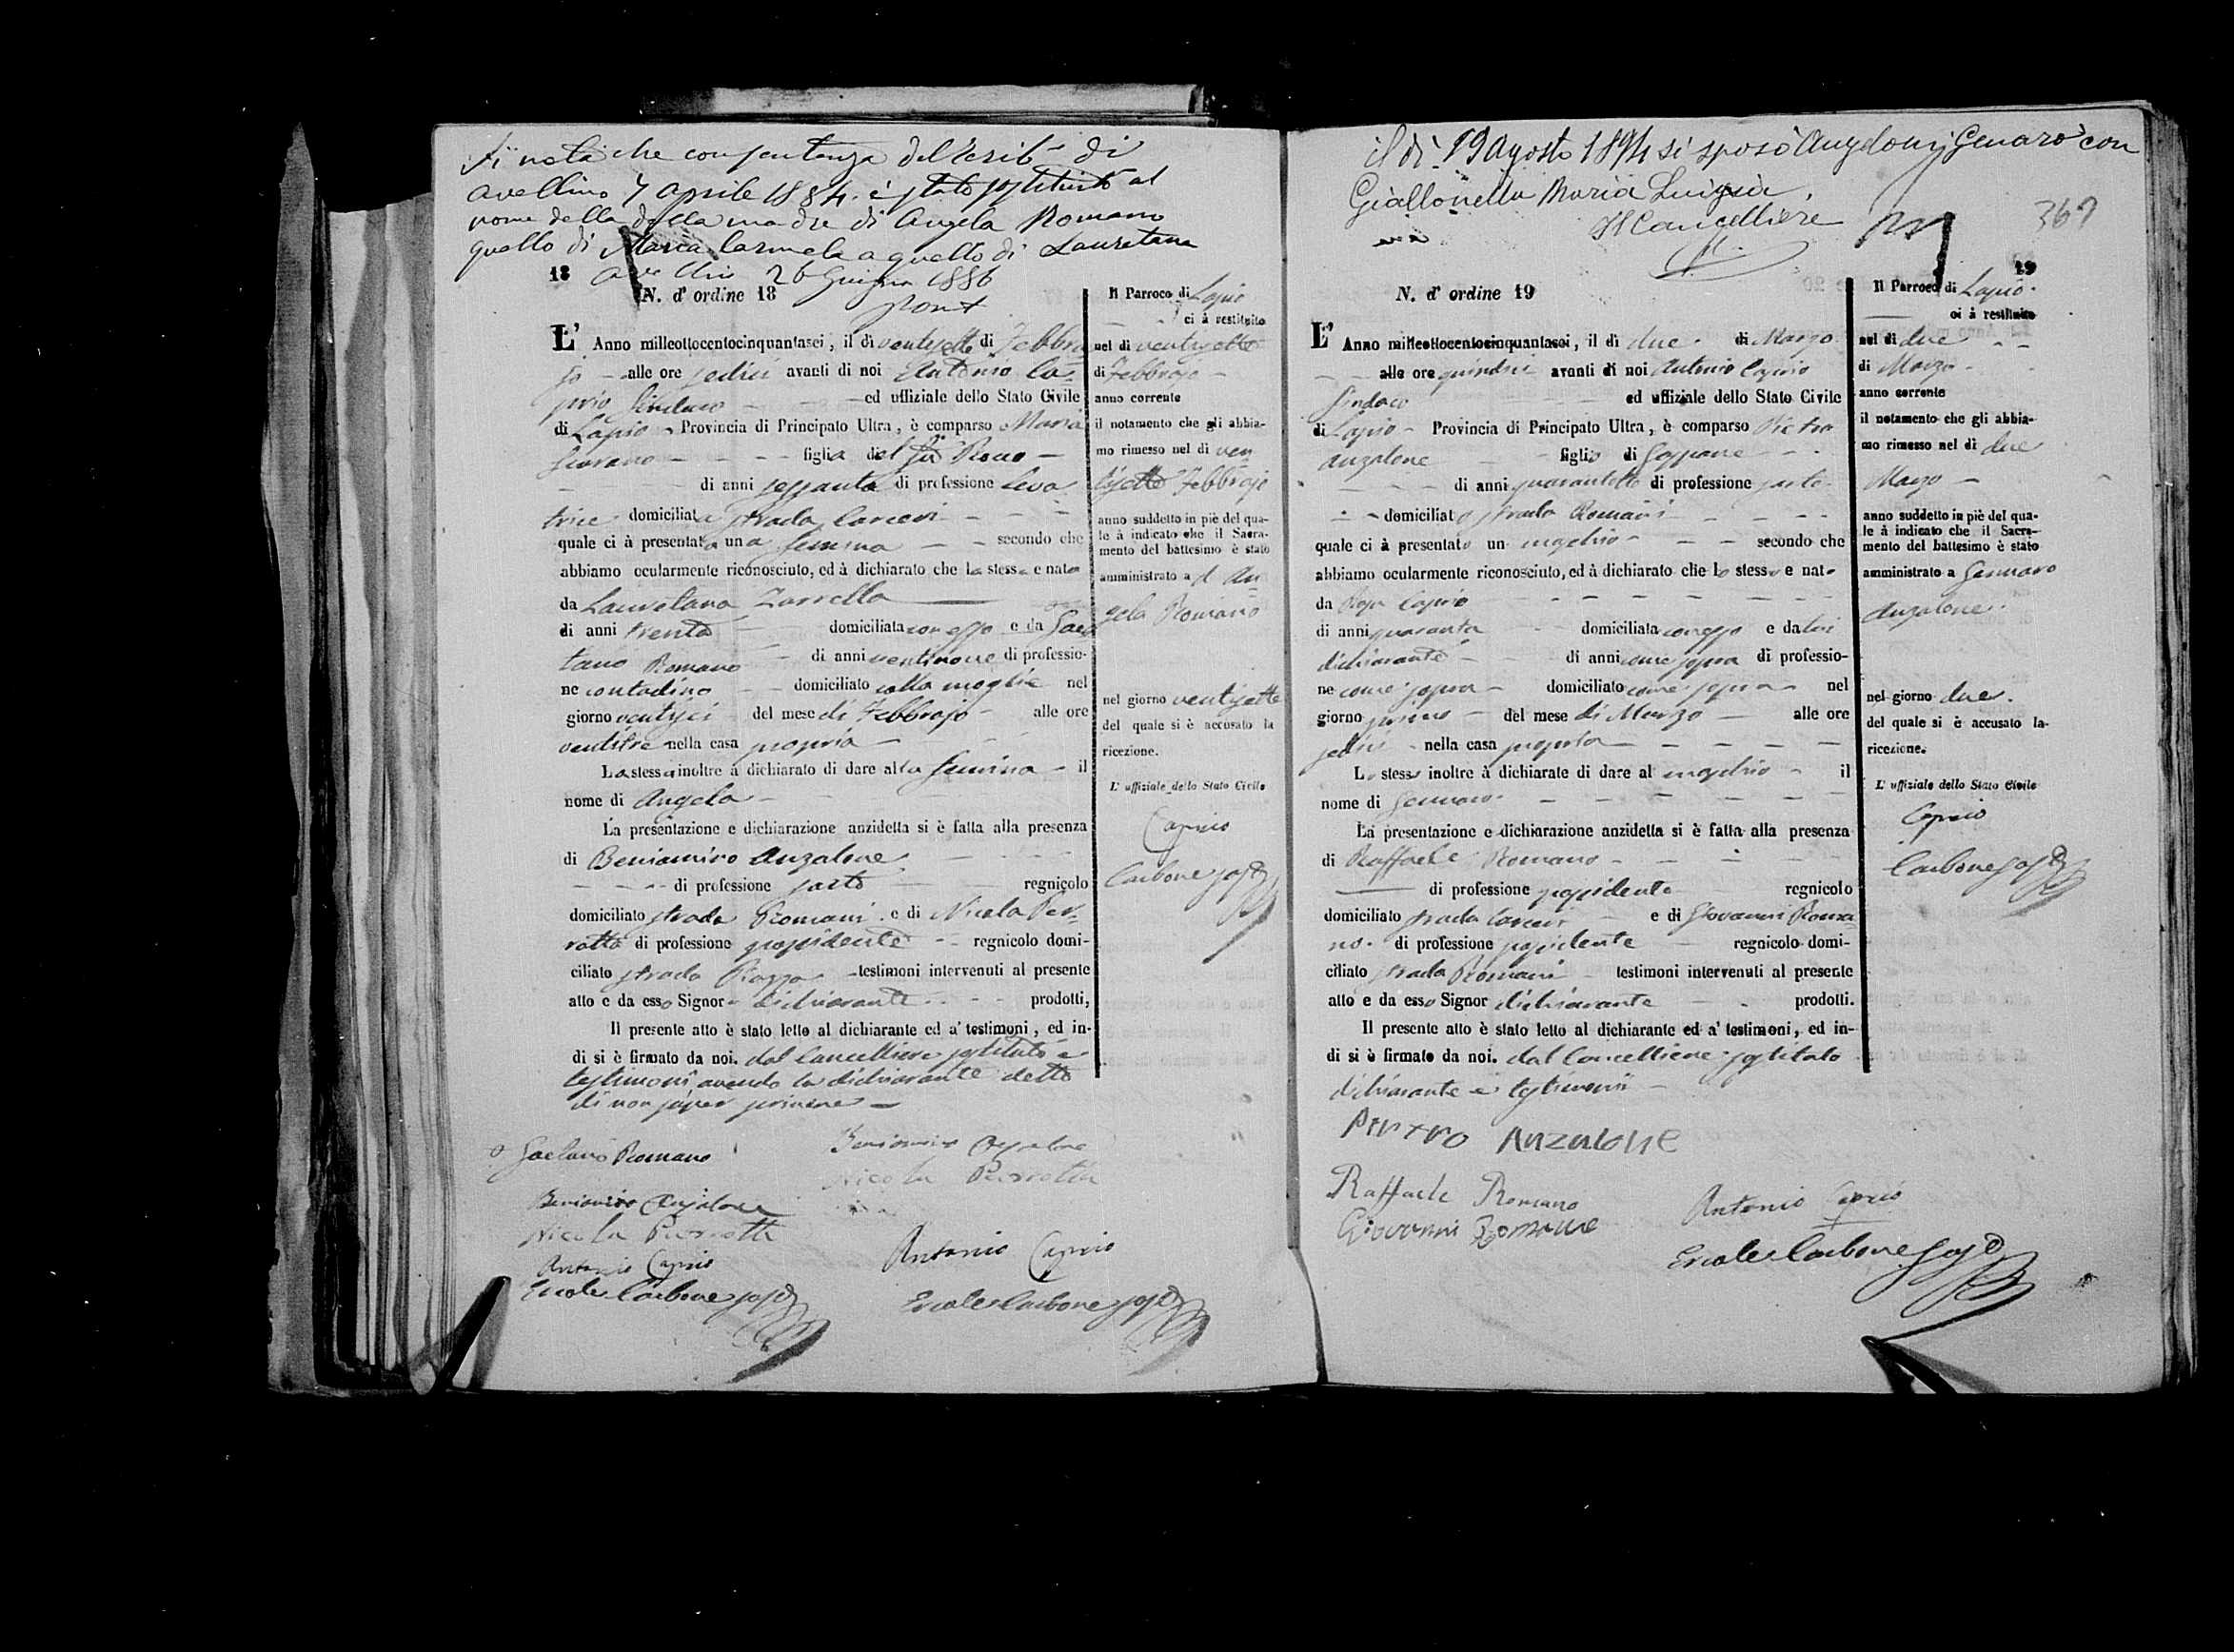 Si nota che con sentenza del Trib. di
Avellino 7 Aprile 1884 è stato sostituito al
nome della della madre di Angela Romano
quello di Maria Carmela a quello di Lauretana
Avellino 26 Giugno 1886
18
N. d' ordine 18
L' Anno milleottocentocinquantasei, il dì ventisette di Febbra
jo - alle ore sedici avanti di noi Antonio Ca-
prio Sindaco ed uffiziale dello Stato Civile
di Lapio - Provincia di Principato Ultra, è comparso Maria
figlia del fu Rocco
di anni sessanta di professione Leva
trice domiciliata strada Carceri
quale ci à presentata una femina secondo che
abbiamo ocularmente riconosciuto, ed à dichiarato che La stessa e nata
da Lauretana Zarrella
di anni trenta domiciliata con esso e da Gae
tano Romano di anni ventinove di professio-
ne contadino domiciliato colla moglie nel
giorno ventisei del mese di Febbrajo alle ore
ventitre nella casa propria
La stessa inoltre à dichiarato di dare alla femina il
nome di Angela
La presentazione e dichiarazione anzidetta si è fatta alla presenza
di Beniamino Anzalone
di professione sarto regnicolo
domiciliato strada Romani e di Nicola Per-
rotta di professione possidente regnicolo domi-
ciliato strada Piazza testimoni intervenuti al presente
atto e da esso Signor dichiarante prodotti,
Il presente atto è stato letto al dichiarante ed a' testimoni, ed in-
di si è firmato da noi. dal Cancelliere sostituto e
testimoni, avendo la dichiarante detto
di non saper scrivere
Gaetano Romano
Beniamino Anzalone
Nicola Perrotta
Antonio Caprio
Ercole Carbone sost
Beniamino Anzalone
Nicola Perrotta
Antonio Caprio
Ercole Carbone sost
Il Parroco di Lapio
ci à restituito
nel dì ventisette
di Febbrajo
anno corrente
il notamento che gli abbia-
mo rimesso nel dì ven
tisette Febbrajo
anno suddetto in piè del qua-
le à indicato che il Sacra-
mento del battesimo è stato
amministrato a d An
gela Romano
nel giorno ventisette
del quale si è accusato la
ricezione.
L' uffiziale dello Stato Civile
Caprio
Carbone sost
il dì 19 Agosto 1894 si sposò Genaro con
Giallonella Maria Luigia
Il Cancelliere
367
19
N. d' ordine 19
L' Anno milleottocentocinquantasei, il dì due di Marzo
alle ore quindici avanti di noi Antonio Caprio
Sindaco ed uffiziale dello Stato Civile
di Lapio - Provincia di Principato Ultra, è comparso Pietro
Anzalone figlio di
di anni quarantotto di professione sarto
domiciliato strada Romani
quale ci à presentato un maschio secondo che
abbiamo ocularmente riconosciuto, ed à dichiarato che Lo stesso e nato
da Rosa Caprio
di anni quaranta domiciliata con esso e da lui
dichiarante di anni come sopra di professio-
ne come sopra domiciliato come sopra nel
giorno primo del mese di Marzo alle ore
sedici nella casa propria
Lo stesso inoltre à dichiarato di dare al maschio il
nome di Gennaro
La presentazione e dichiarazione anzidetta si è fatta alla presenza
di Raffaele Romano
di professione possidente regnicolo
domiciliato strada Carceri e di Giovanni Roma
no di professione possidente regnicolo domi-
ciliato strada Romani testimoni intervenuti al presente
atto e da esso Signor dichiarante prodotti.
Il presente atto è stato letto al dichiarante ed a' testimoni, ed in-
di si è firmato da noi. dal Cancelliere sostituto
dichiarante e testimonii
Pietro Anzalone
Raffaele Romano
Giovanni Romano
Antonio Caprio
Ercole Carbone sost
Il Parroco di Lapio
ci à restituito
nel dì due
di Marzo
anno corrente
il notamento che gli abbia-
mo rimesso nel dì due
Marzo
anno suddetto in piè del qua-
le à indicato che il Sacra-
mento del battesimo è stato
amministrato a Gennaro
Anzalone
nel giorno due
del quale si è accusato la
ricezione.
L' uffiziale dello Stato Civile
Caprio
Carbone sost